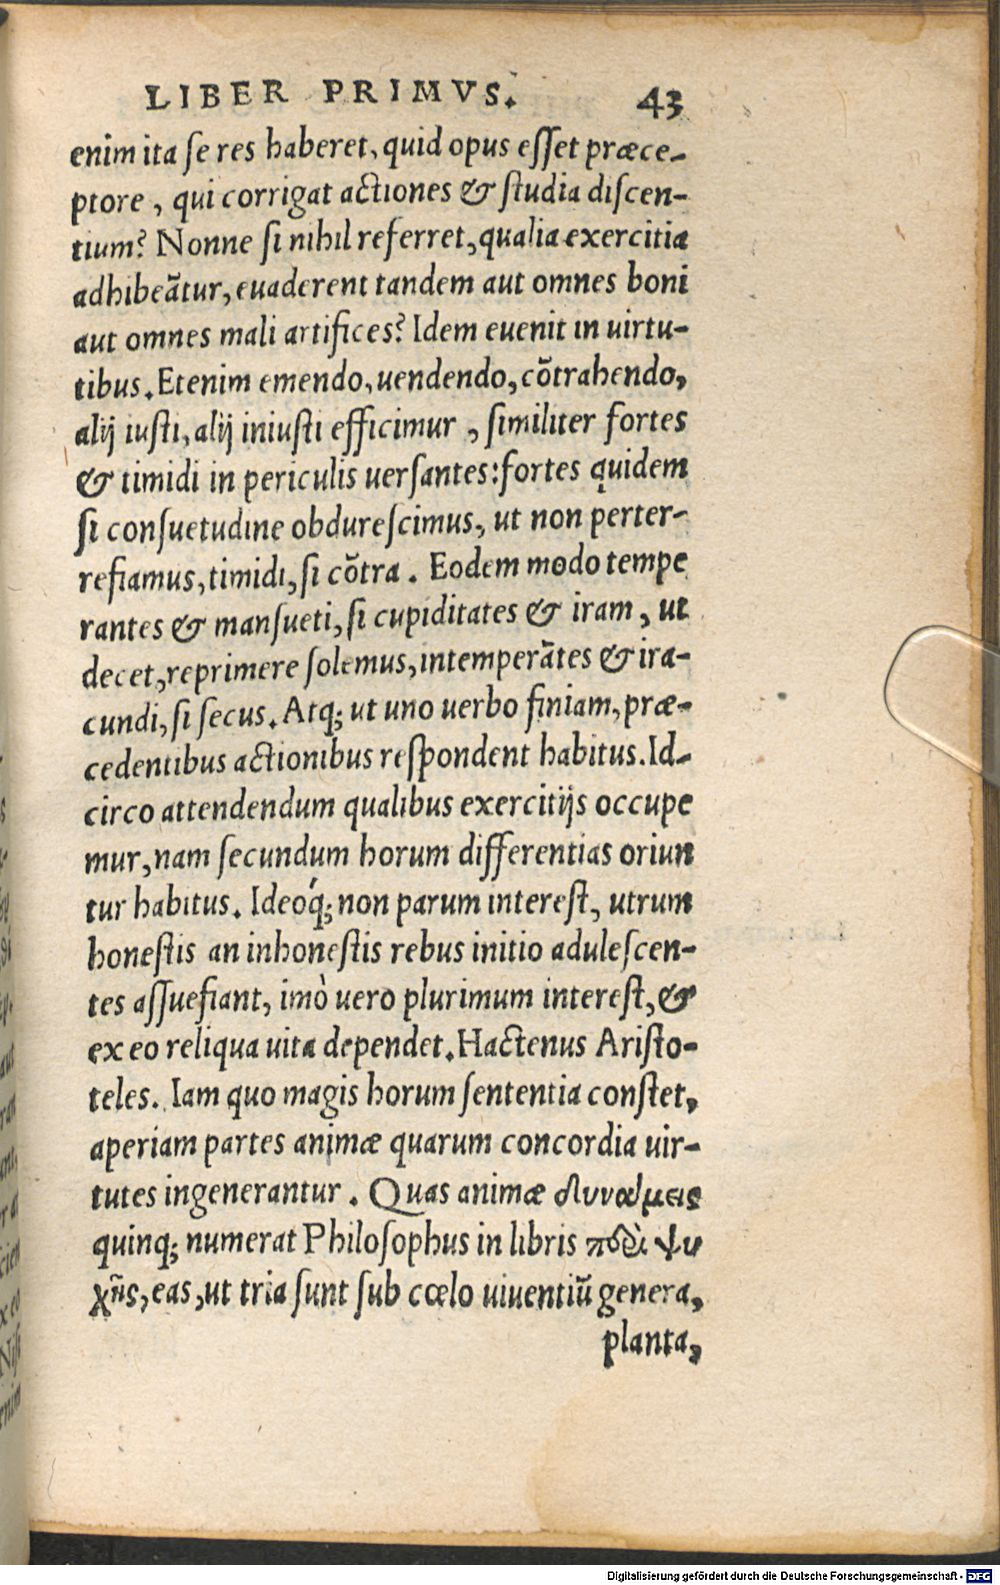 LIBER PRIMVS. 43
enim ita ſe res haberet, quid opus eſſet præce-
ptore, qui corrigat actiones & ſtudia diſcen-
tium? Nonne ſi nihil referret, qualia exercitia
adhibeãtur, euaderent tandem aut omnes boni
aut omnes mali artifices? Idem euenit in uirtu-
tibus. Etenim emendo, uendendo, cõtrahendo,
alij iuſti, alij iniuſti efficimur, ſimiliter fortes
& timidi in periculis uerſantes: fortes quidem
ſi conſuetudine obdureſcimus, ut non perter-
refiamus, timidi, ſi cõtra. Eodem modo tempe
rantes & manſueti, ſi cupiditates & iram, ut
decet, reprimere ſolemus, intemperãtes & ira-
cundi, ſi ſecus. Atq; ut uno uerbo finiam, præ-
cedentibus actionibus reſpondent habitus. Id-
circo attendendum qualibus exercitijs occupe
mur, nam ſecundum horum differentias oriun
tur habitus. Ideoq́; non parum intereſt, utrum
honeſtis an inhoneſtis rebus initio aduleſcen-
tes aſſuefiant, imò uero plurimum intereſt, &
ex eo reliqua uita dependet. Hactenus Ariſto-
teles. Iam quo magis horum ſententia conſtet,
aperiam partes animæ quarum concordia uir-
tutes ingenerantur. Quas animæ δυνάμεις
quinq; numerat Philoſophus in libris περὶ ψυ
χῆς, eas, ut tria ſunt ſub cœlo uiuentiũ genera,
planta,
Digitalisierung gefördert durch die Deutsche Forschungsgemeinschaft - DFG